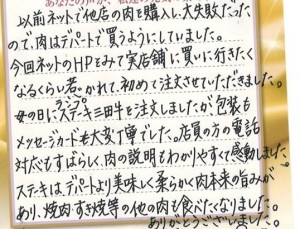 以前ネットで他店の肉を購入し、大失敗だった
ので、肉はデパートで買うようにしていました。
今回ネットのHPをみて実店舗に買いに行きたく
なるくらい惹かれて、初めて注文させていただきました。
母の日にランプステーキ三田牛を注文しましたが、包装も
メッセージカードも大変丁寧でした。店員の方の電話
対応もすばらしく、肉の説明もわかりやすくて感動しました。
ステキは、デパートより美味しく柔らかく肉本来の旨みが
あり、焼肉、すき焼等の他の肉も食べたくなりました。
ありがとうございました。